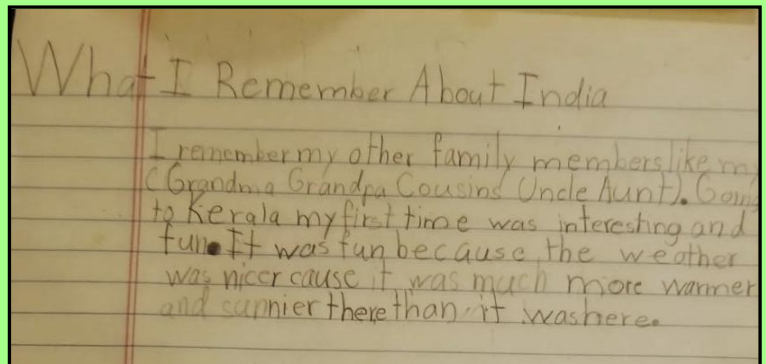 What I Remember About India
I remember my other family members like my
(Grandma Grandpa Cousins Uncle Aunt). Going
to Kerala my first time was interesting and
fun. It was fun because the weather
was nicer cause it was much more warmer
and sunnier there than it was here.